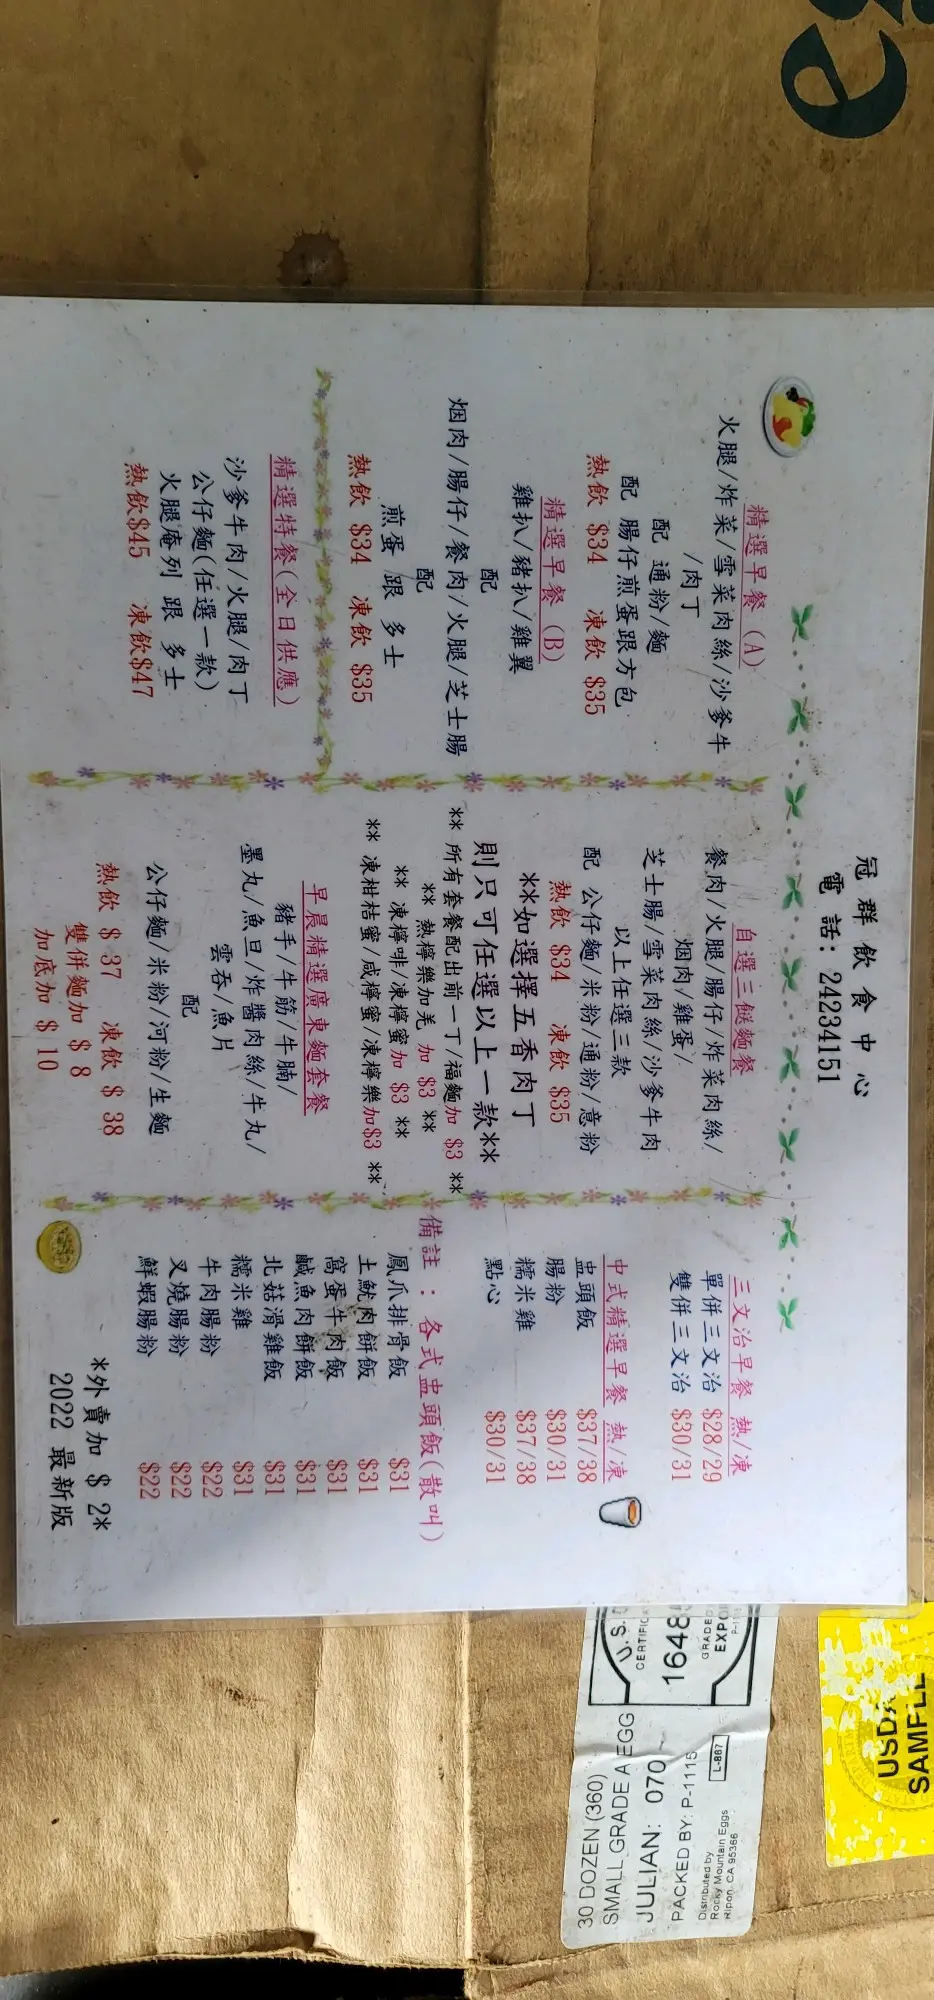 冠群飲食中心
電話: 24234151
精選早餐 (A)
火腿/炸菜/雪菜肉絲/沙爹牛
/肉丁
配 通粉/麵
配 腸仔煎蛋跟方包
熱飲 $34 凍飲 $35
精選早餐 (B)
雞扒/豬扒/雞翼
配
烟肉/腸仔/餐肉/火腿/芝士腸
配
煎蛋 跟 多士
熱飲 $34 凍飲 $35
精選特餐(全日供應)
沙爹牛肉/火腿/肉丁
公仔麵(任選一款)
火腿庵列 跟 多士
熱飲$45 凍飲$47
自選三餸麵餐
餐肉/火腿/腸仔/炸菜肉絲/
烟肉/雞蛋/
芝士腸/雪菜肉絲/沙爹牛肉
以上任選三款
配 公仔麵/米粉/通粉/意粉
熱飲 $34 凍飲 $35
**如選擇五香肉丁
則只可任選以上一款**
** 所有套餐配出前一丁/福麵加 $3 **
** 熱檸樂加羌 加 $3 **
** 凍檸啡/凍檸蜜加 $3 **
** 凍柑桔蜜/咸檸蜜/凍檸樂加$3 **
早晨精選廣東麵套餐
豬手/牛筋/牛腩/
墨丸/魚旦/炸醬肉絲/牛丸/
雲吞/魚片
配
公仔麵/米粉/河粉/生麵
熱飲 $ 37 凍飲 $ 38
雙併麵加 $ 8
加底加 $ 10
三文治早餐 熱/凍
單併三文治 $28/29
雙併三文治 $30/31
中式精選早餐 熱/凍
盅頭飯 $37/38
腸粉 $30/31
糯米雞 $37/38
點心 $30/31
備註 : 各式盅頭飯(散叫)
鳳爪排骨飯 $31
土魷肉餅飯 $31
窩蛋牛肉飯 $31
鹹魚肉餅飯 $31
北菇滑雞飯 $31
糯米雞 $31
牛肉腸粉 $22
叉燒腸粉 $22
鮮蝦腸粉 $22
*外賣加 $ 2*
2022 最新版
U.S.
CERTIFIC
1648
GRADED
EXPO
30 DOZEN (360)
SMALL GRADE A EGG
JULIAN: 070
PACKED BY: P-1115
L-867
Distributed by
Rocky Mountain Eggs
Ripon, CA 95366
USDA
SAMPLE